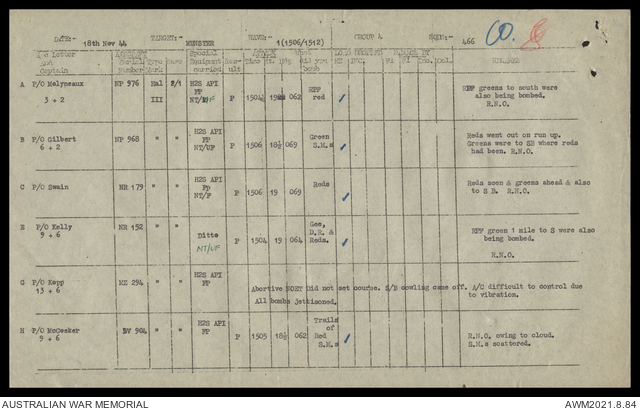 DATE:- 18th Nov 44 TARGET:- MUNSTER WAVE:- 1(1506/1512) GROUP 4 SQDN:- 466 CO.
A/C Letter and Captain Serial Number Type Mark Special Equipment carried Result Time Ht. Hdg did you bomb REMARKS
A P/O Molyneaux NP 976 Hal 2/1 H2S API RPF RPF greens to south were
3 + 2 III FP NT/UF P 1504½ 062 red also being bombed.
R.N.O.
B P/O Gilbert NP 968 " " H2S API Green Reds went out on run up.
6 + 2 FP NT/UF P 1506 18½ 069 S.M.s Greens were to SE where reds
had been. R.N.O.
C P/O Swain NR 179 " " H2S API Reds Reds seen & greens ahead & also
Fp NT/F P 1506 19 069 to S B. R.N.O.
E P/O Kelly NR 152 " " Gee, RPF green 1 mile to S were also
9 + 6 Ditte P 1504 19 064 D.R. & being bombed.
NT/UF Reds.
R.N.O.
G P/O Kopp MZ 294 " " H2S API
13 + 6 FP Abortive NOET Did not set course. S/B cowling came off. A/C difficult to control due
to vibration.
All bombs jettisoned.
H P/O McCosker NV 904 " " H2S API Trails
9 + 6 FP P 1505 18½ 062 of R.N.O. owing to cloud.
Red S.M.s scattered.
S.M.s
AUSTRALIAN WAR MEMORIAL AWM2021.8.84